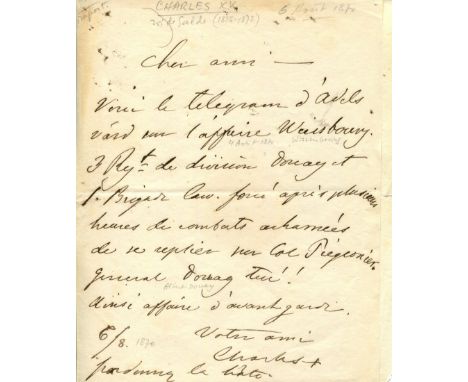 CHARLES XV
roi de Suède (1859-1872)
6 Août 1870
Cher ami —
Voici le telegram d'Adels
värd sur l'affaire Waissbourg.
4 Août 1870 Wissembourg
3 Regt. de division Douay et
1. Brigad Cav. forcé après plusieurs
heures de combats acharnées
de se replier sur Col Piégeonier.
general Douay tué!
Abel Douay
ainsi affaire d'avant garde.
6/8. 1870 Votre ami
Charles
pardonnez le hâte